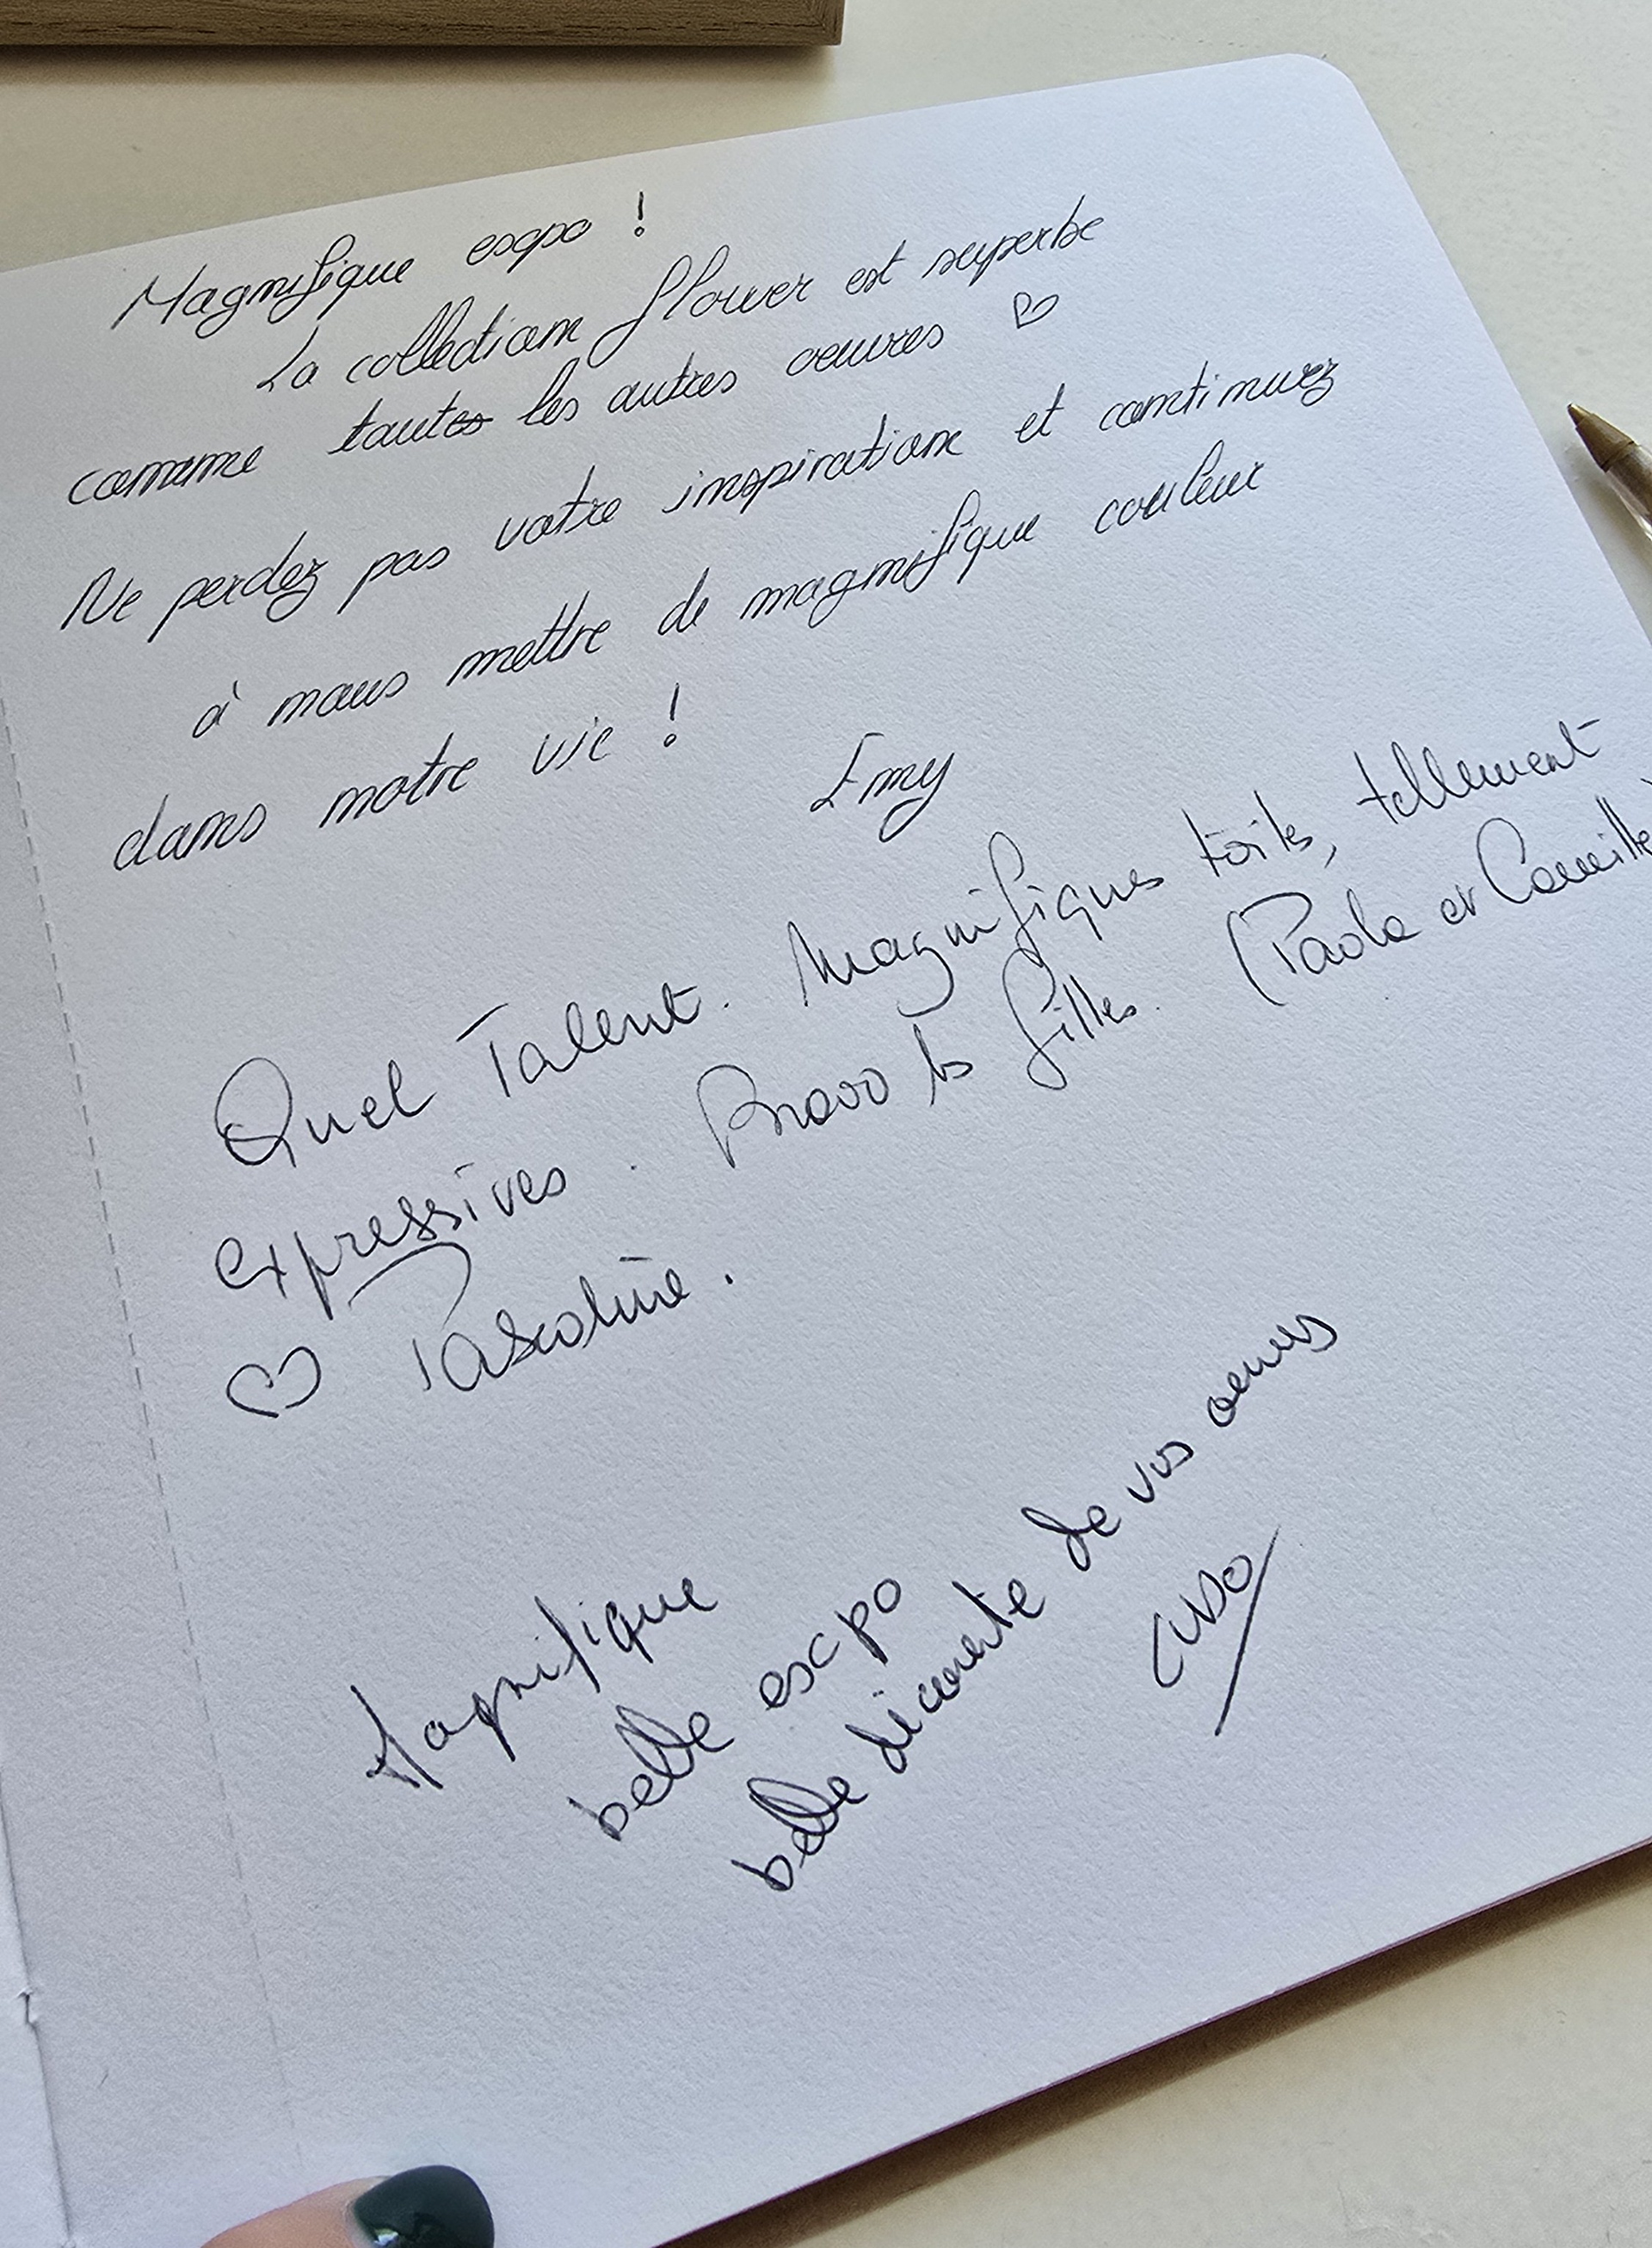 Magnifique expo !
La collection flower est superbe
comme toutes les autres oeuvres ♡
Ne perdez pas votre inspiration et continuez
à nous mettre de magnifique couleur
dans notre vie !
Emy
Quel Talent. Magnifiques toiles, tellement
expressives. Bravo les filles. (Paola et Camille
♡ Pascaline.
Magnifique
belle expo
belle découverte de vos oeuvres